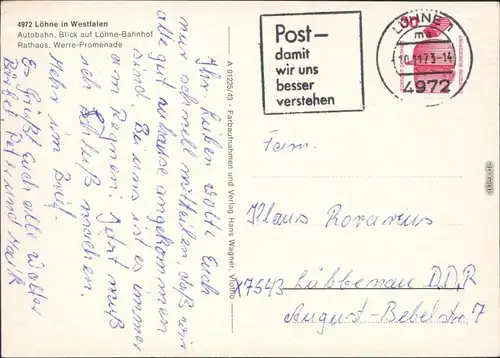 4972 Löhne in Westfalen
Autobahn, Blick auf Löhne-Bahnhof
Rathaus, Werre-Promenade
Ihr Lieben wollte Euch
nur schnell mitteilen, daß wir
alle gut zuhause angekommen
sind. Bei uns ist es immer
am Regnen. Jetzt muß
ich Schluß machen.
Mehr im Brief.
Es Grüßt Euch alle Walter
Bärbel, Petra und Maik
A 01225/43 · Farbaufnahmen und Verlag Hans Wagner, Vlotho
Post–
damit
wir uns
besser
verstehen
LÖHNE 1
ma
10.11.73-14
4972
Fam.
Klaus Rovanus
X7543 Lübbenau DDR
August-Bebelstr 7